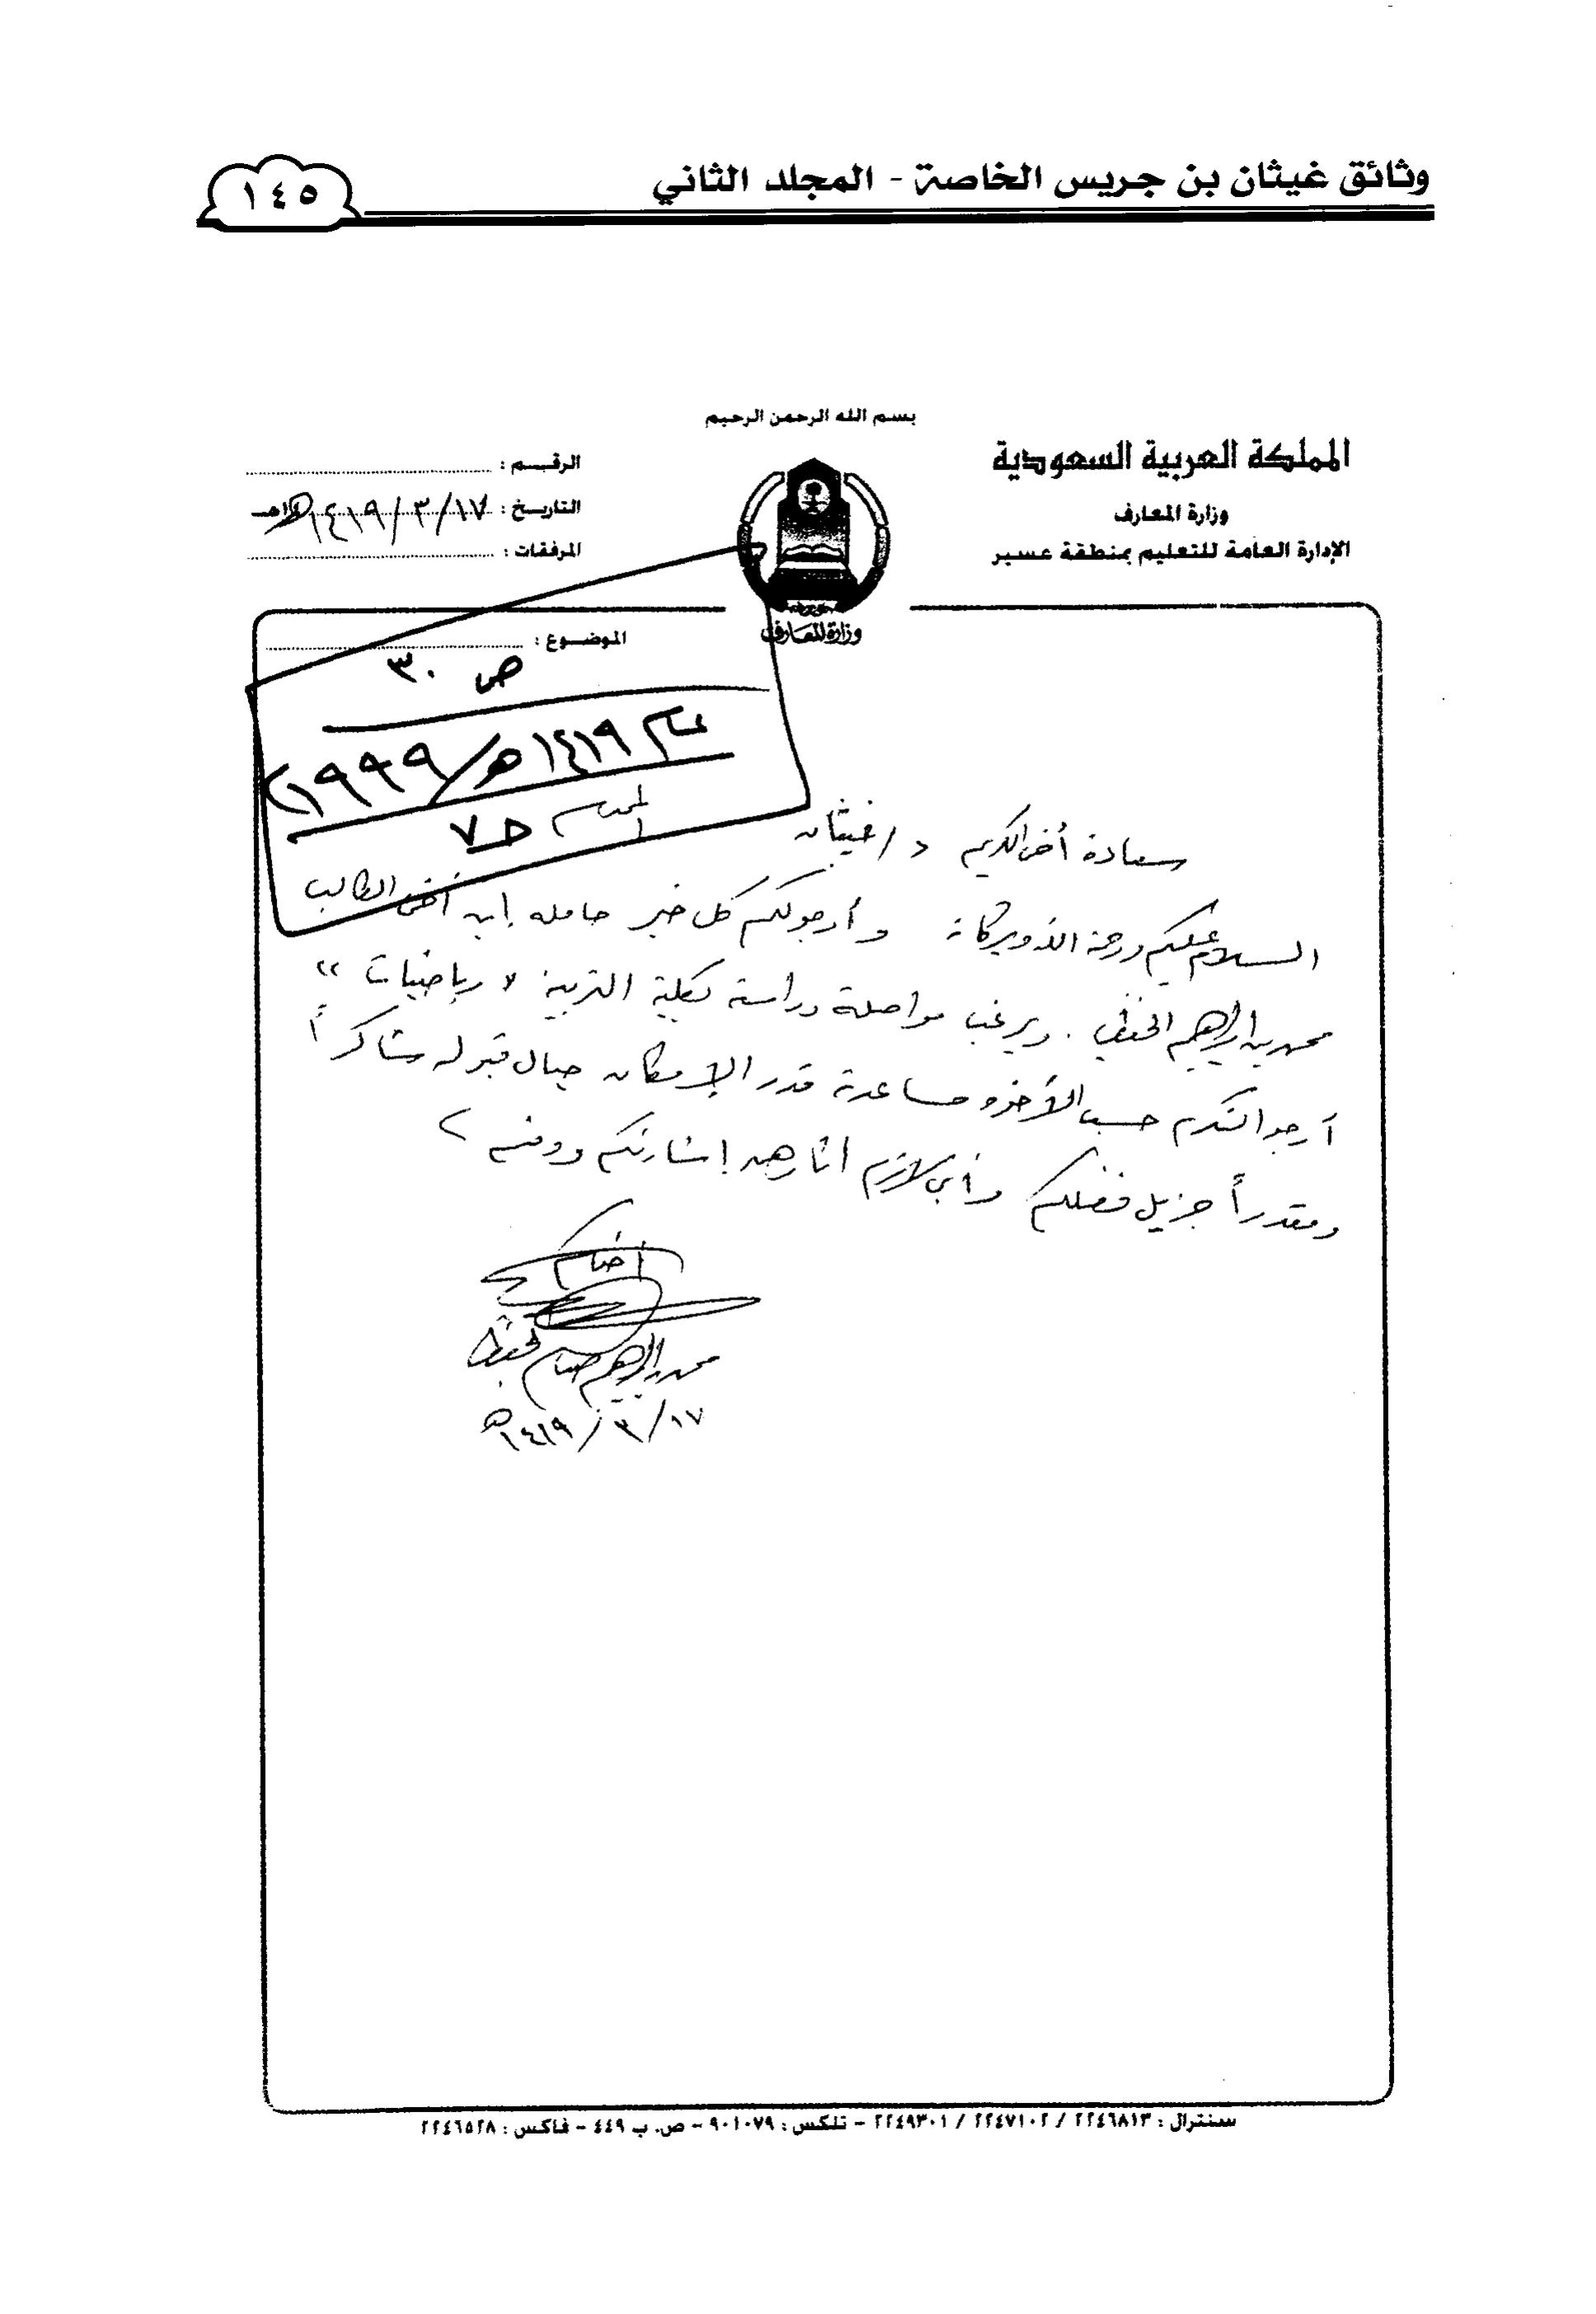 وثائق غيثان بن جريس الخاصة - المجلد الثاني
١٤٥
بسم الله الرحمن الرحيم
المملكة العربية السعودية
وزارة المعارف
الإدارة العامة للتعليم بمنطقة عسير
الرقم :
التاريخ : ١٧/٣/١٤١٩هـ
المرفقات :
وزارة المعارف
الموضوع :
ص ٣٠
عام ١٤١٩هـ/١٩٩٩م
ح٧
سعادة أخي الكريم د/ غيثان
السلام عليكم ورحمة الله وبركاته وأرجو لكم كل خير حامله ابن أخي الطالب
محمد بن إبراهيم الحفظي . ويرغب مواصلة دراسته بكلية التربية " رياضيات "
أرجو التكرم حسب الأخوة مساعدته قدر الإمكان حيال قبوله شاكراً
ومقدراً جزيل فضلكم وأي لازم إشارتكم ودمتم
أخوكم
محمد إبراهيم الحفظي
١٧/٣/١٤١٩هـ
سنترال : ٢٢٤٦٨١٣ / ٢٢٤٧١٠٢ / ٢٢٤٩٣٠١ - تلكس : ٩٠١٠٧٩ - ص. ب ٤٤٩ - فاكس : ٢٢٤٦٥٢٨